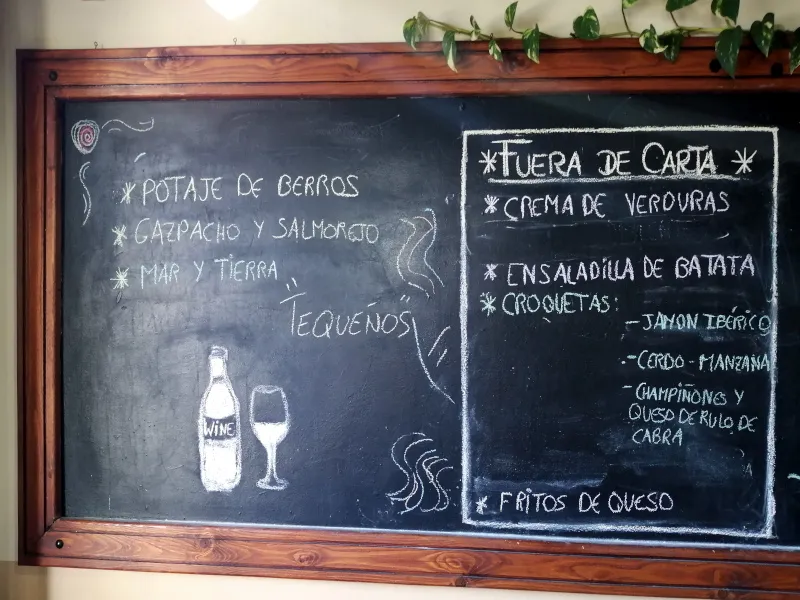 * POTAJE DE BERROS
* GAZPACHO Y SALMOREJO
* MAR Y TIERRA
"TEQUEÑOS"
WINE
* FUERA DE CARTA *
* CREMA DE VERDURAS
* ENSALADILLA DE BATATA
* CROQUETAS:
- JAMON IBÉRICO
- CERDO - MANZANA
- CHAMPIÑONES Y
QUESO DE RULO DE
CABRA
* FRITOS DE QUESO